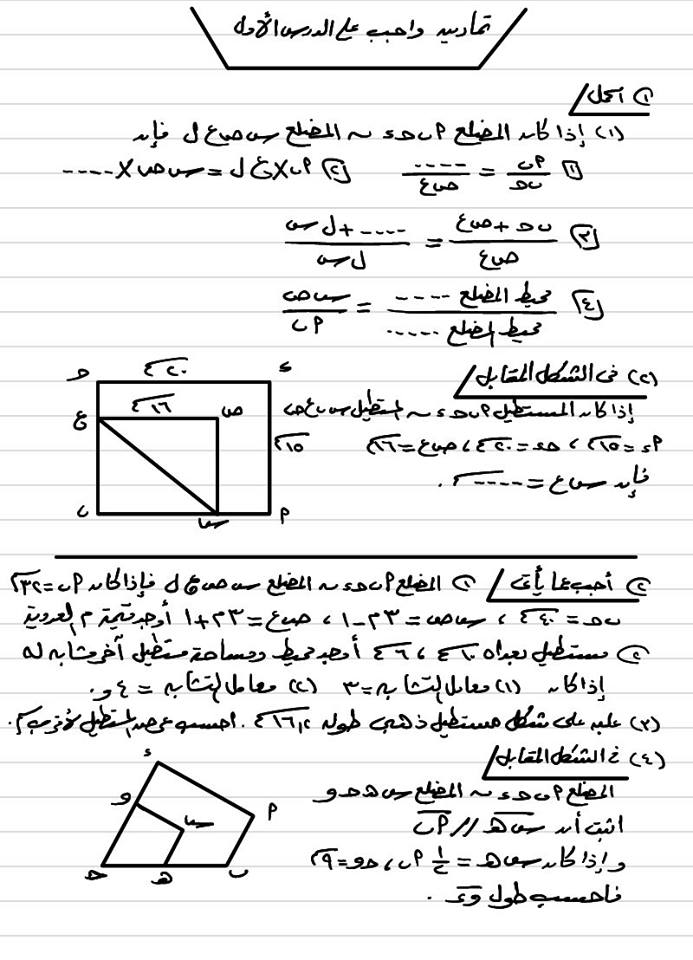 تمارين واجب على الدرس الأول
① أكمل
(١) إذا كان المضلع ٢ ب حـ ء ~ المضلع س ص ع ل فإن
① ٢ب/ب حـ = ..../ص ع ② ٢ب × ع ل = س ص × ....
③ (ب حـ + ص ع)/ص ع = (.... + ل س)/ل س
④ محيط المضلع ..../محيط المضلع .... = س ص/٢ب
(٢) في الشكل المقابل
إذا كان المستطيل ٢ ب حـ ء ~ المستطيل س ب ع ص
٢ء = ١٥سم ، حـ ء = ٢٠سم ، ص ع = ١٦سم
فإن س ع = .... سم .
حـ ٢٠سم ء
ع ١٦سم ص
١٥سم
ب س ٢
② أجب عما يأتى ① المضلع ٢ ب حـ ء ~ المضلع س ص ع ل فإذا كان ٢ب = ٣٢سم
ب حـ = ٤٠سم ، س ص = ٣م - ١ ، ص ع = ٣م + ١ أوجد قيمة م العددية
② مستطيل بعداه ١٠سم ، ٦سم أوجد محيط ومساحة مستطيل آخر مشابه له
إذا كان (١) معامل التشابه = ٣ (٢) معامل التشابه = ٤و.
(٣) علبه على شكل مستطيل ذهبى طوله ١٦,٢سم . احسب عرض المستطيل لأقرب سم.
(٤) في الشكل المقابل
المضلع ٢ ب حـ ء ~ المضلع س هـ حـ و
اثبت أن س هـ // ٢ب
و إذا كان س هـ = ١/٢ ٢ب ، حـ و = ٩سم
فاحسب طول و ء .
ء
و
س
٢
حـ هـ ب